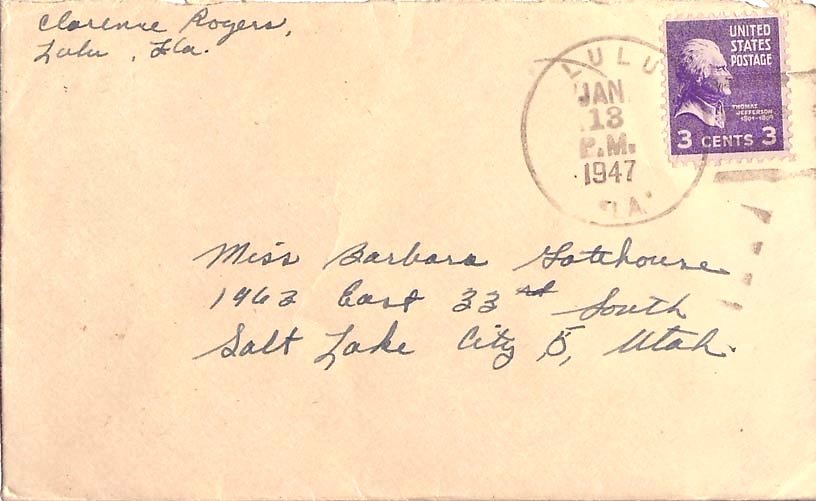 Clarence Rogers,
Lulu, Fla.
LULU
JAN.
13
P.M.
1947
FLA.
UNITED
STATES
POSTAGE
THOMAS
JEFFERSON
1801-1809
3 CENTS 3
Miss Barbara Gatehouse
1962 East 33rd South
Salt Lake City 5, Utah.